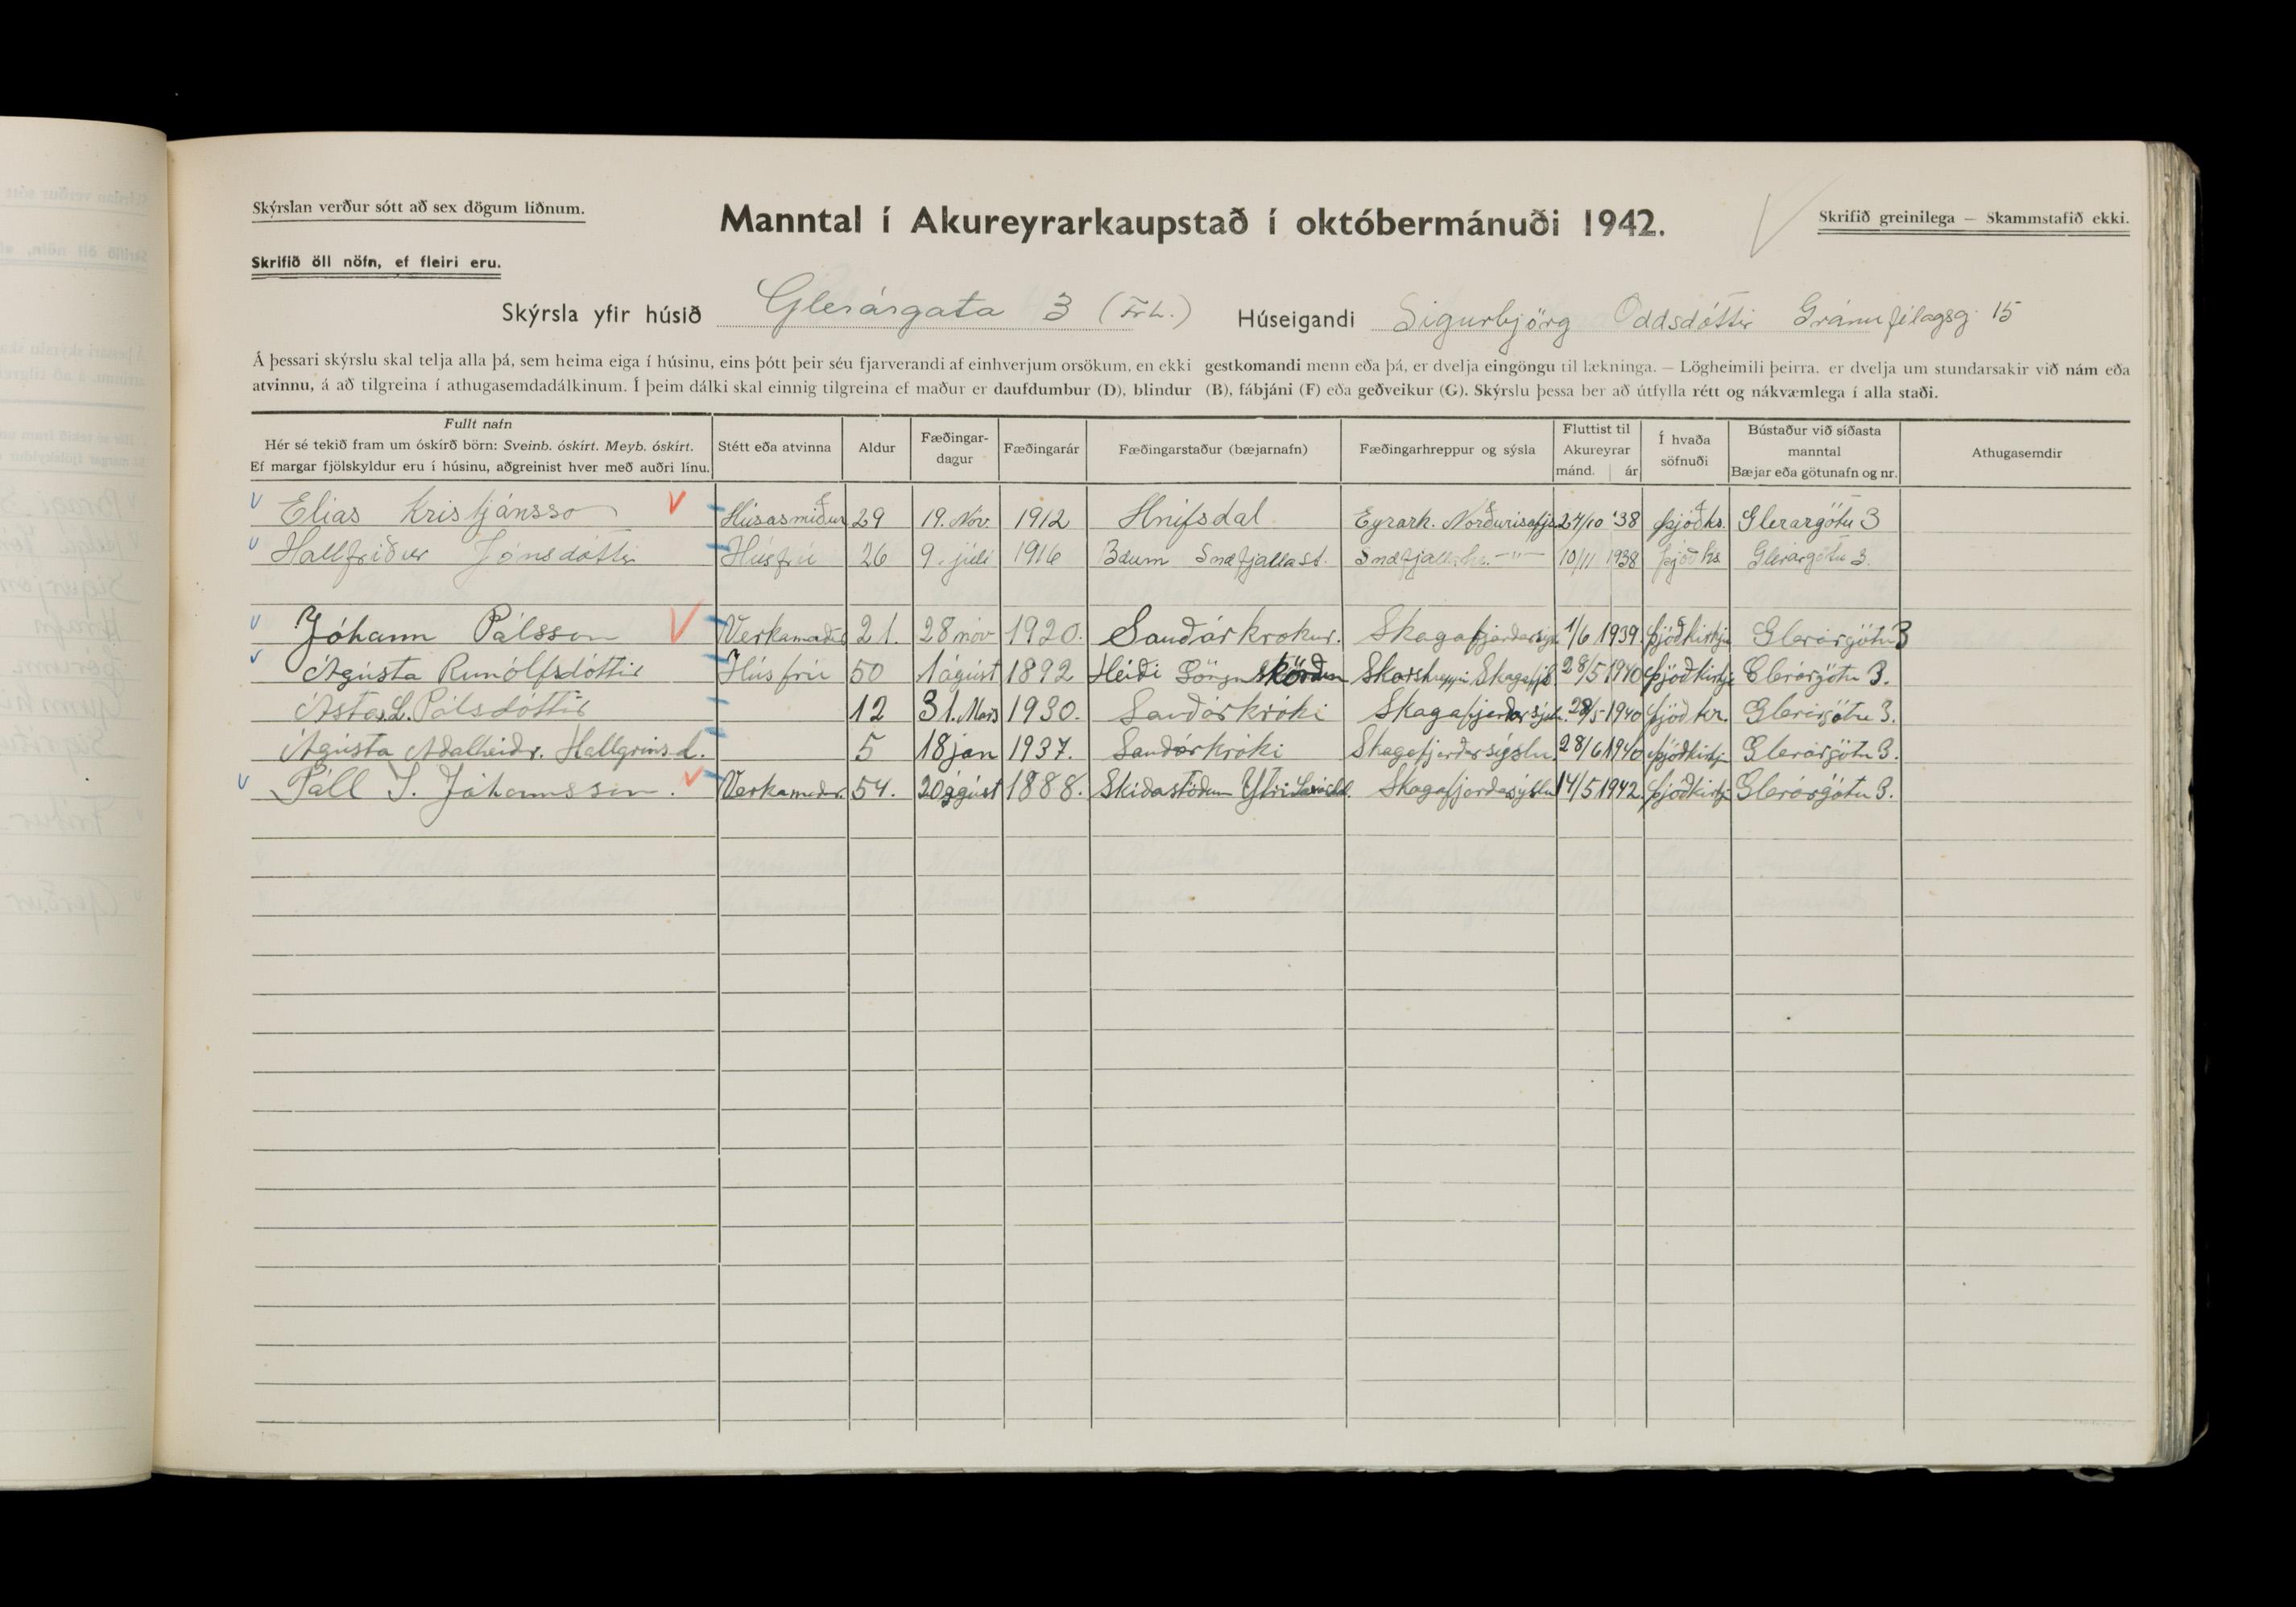 Skýrslan verður sótt að sex dögum liðnum.
Manntal í Akureyrarkaupstað í októbermánuði 1942.
Skrifið greinilega — Skammstafið ekki.
Skrifið öll nöfn, ef fleiri eru.
Skýrsla yfir húsið Glerárgata 3 (Frh.) Húseigandi Sigurbjörg Oddsdóttir Gránufélagsg. 15
Á þessari skýrslu skal telja alla þá, sem heima eiga í húsinu, eins þótt þeir séu fjarverandi af einhverjum orsökum, en ekki gestkomandi menn eða þá, er dvelja eingöngu til lækninga. — Lögheimili þeirra, er dvelja um stundarsakir við nám eða
atvinnu, á að tilgreina í athugasemdadálkinum. Í þeim dálki skal einnig tilgreina ef maður er daufdumbur (D), blindur (B), fábjáni (F) eða geðveikur (G). Skýrslu þessa ber að útfylla rétt og nákvæmlega í alla staði.
Fullt nafn
Hér sé tekið fram um óskírð börn: Sveinb. óskírt. Meyb. óskírt.
Ef margar fjölskyldur eru í húsinu, aðgreinist hver með auðri línu.
Stétt eða atvinna
Aldur
Fæðingar-
dagur
Fæðingarár
Fæðingarstaður (bæjarnafn)
Fæðingarhreppur og sýsla
Fluttist til
Akureyrar
mánd. ár
Í hvaða
söfnuði
Bústaður við síðasta
manntal
Bæjar eða götunafn og nr.
Athugasemdir
Elias Kristjánsso Húsasmiður 29 19. Nóv. 1912 Hnífsdal Eyrarh. Norðurisafjs 24/10 '38 þjóðks. Glerargötu 3
Hallfríður Jónsdóttir Húsfrú 26 9. júlí 1916 Bæum Snæfjallast. -"- 10/11 1938 þjóðks Glerárgötu 3.
Jóhann Pálsson Verkamaður 21. 28 nóv 1920. Sauðárkrokur. Skagafjarðarsýs 1/6 1939. þjóðkirkju Glerárgötu 3
Agústa Runólfsdóttir Húsfrú 50 1 ágúst 1892 Heiði Gönguskörðum Skarshreppi Skagafjs 28/5 1940 þjóðkirkju Glerárgötu 3.
Ásta L. Pálsdóttir 12 31. Mars 1930. Sauðárkróki Skagafjarðarsýslu. 28/5 1940 þjóðkr. Glerárgötu 3.
Ágústa Aðalheiðr. Hallgrimsd. 5 18 jan 1937. Sauðárkróki Skagafjarðarsýslu. 28/6 1940 þjóðkirkju Glerárgötu 3.
Páll J. Jóhannsson. Verkamaðr. 54. 20 ágúst 1888. Skíðastöðum Ytri Skagafjarðarsýslu 14/5 1942. þjóðkirkj Glerárgötu 3.